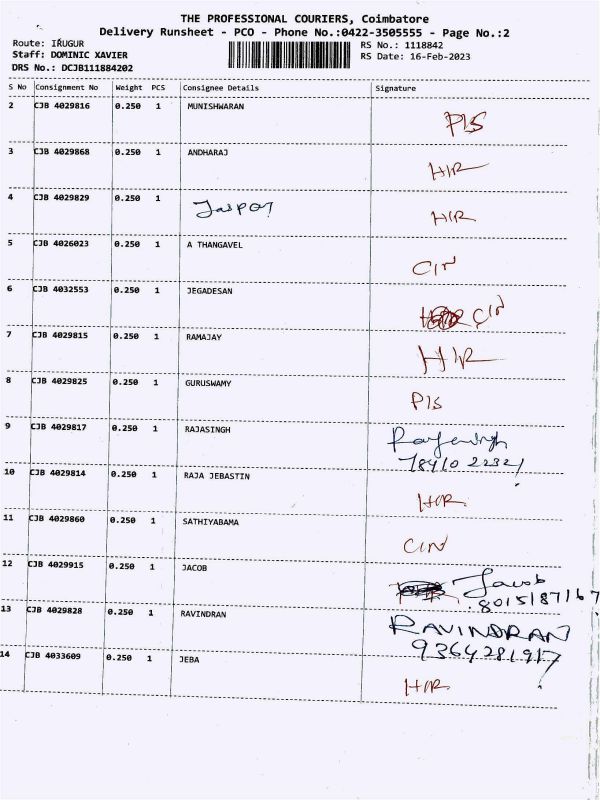 THE PROFESSIONAL COURIERS, Coimbatore
Delivery Runsheet - PCO - Phone No.:0422-3505555 - Page No.:2
Route: IRUGUR RS No.: 1118842
Staff: DOMINIC XAVIER RS Date: 16-Feb-2023
DRS No.: DCJB111884202
S No Consignment No Weight PCS Consignee Details Signature
2 CJB 4029816 0.250 1 MUNISHWARAN P/S
3 CJB 4029868 0.250 1 ANDHARAJ H/R
4 CJB 4029829 0.250 1 H/R
5 CJB 4026023 0.250 1 A THANGAVEL C/N
6 CJB 4032553 0.250 1 JEGADESAN C/N
7 CJB 4029815 0.250 1 RAMAJAY H/R
8 CJB 4029825 0.250 1 GURUSWAMY P/S
9 CJB 4029817 0.250 1 RAJASINGH
10 CJB 4029814 0.250 1 RAJA JEBASTIN H/R
11 CJB 4029860 0.250 1 SATHIYABAMA C/N
12 CJB 4029915 0.250 1 JACOB Jacob
8015187167
13 CJB 4029828 0.250 1 RAVINDRAN RAVINDRAN
9364281917
14 CJB 4033609 0.250 1 JEBA H/R